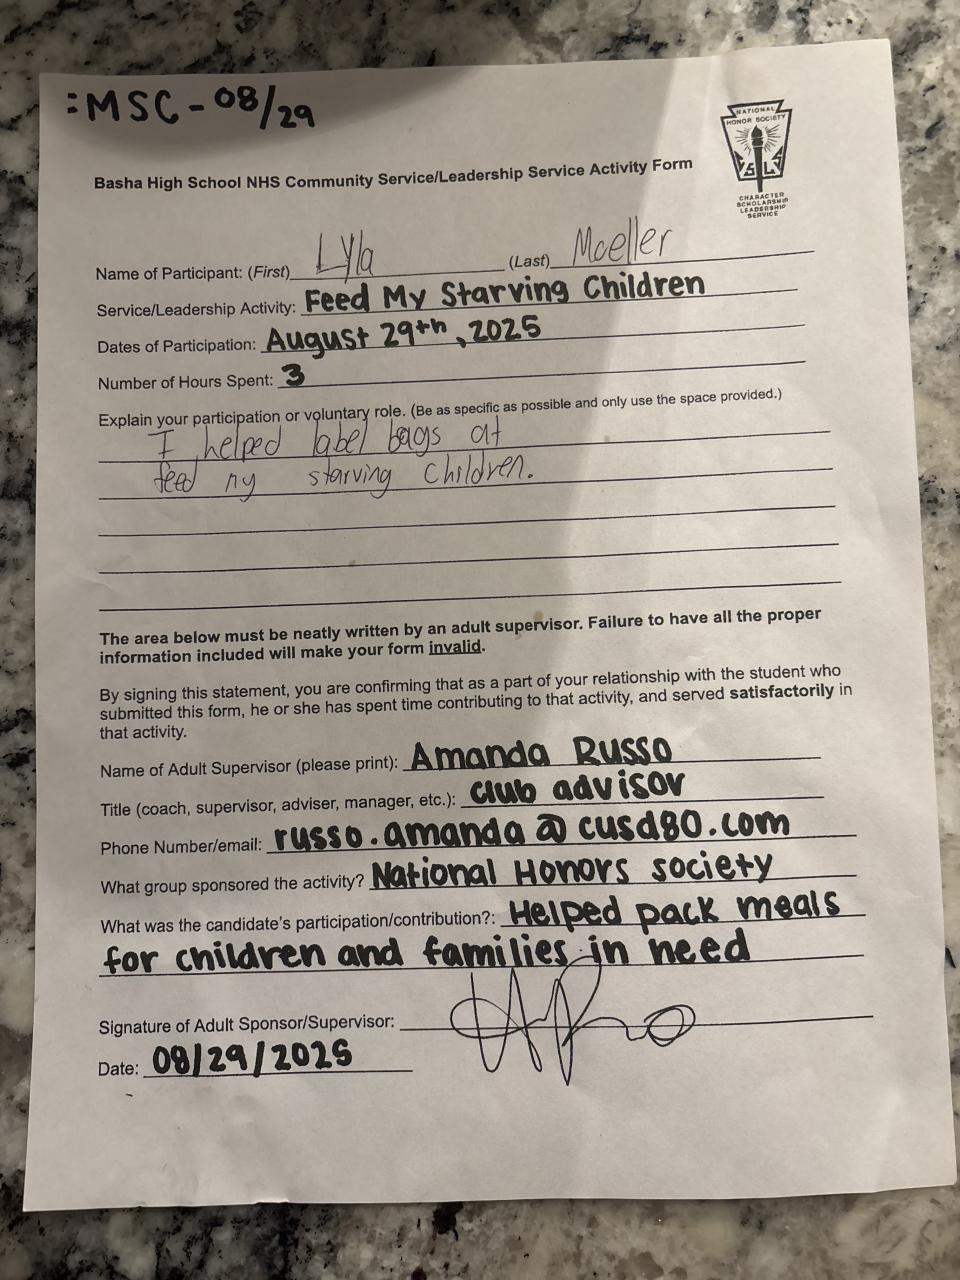 :MSC - 08/29
NATIONAL
HONOR SOCIETY
CHARACTER
SCHOLARSHIP
LEADERSHIP
SERVICE
Basha High School NHS Community Service/Leadership Service Activity Form
Name of Participant: (First) Lyla (Last) Moeller
Service/Leadership Activity: Feed My Starving Children
Dates of Participation: August 29th, 2025
Number of Hours Spent: 3
Explain your participation or voluntary role. (Be as specific as possible and only use the space provided.)
I helped label bags at
feed my starving children.
The area below must be neatly written by an adult supervisor. Failure to have all the proper
information included will make your form invalid.
By signing this statement, you are confirming that as a part of your relationship with the student who
submitted this form, he or she has spent time contributing to that activity, and served satisfactorily in
that activity.
Name of Adult Supervisor (please print): Amanda Russo
Title (coach, supervisor, adviser, manager, etc.): club advisor
Phone Number/email: russo.amanda@cusd80.com
What group sponsored the activity? National Honors society
What was the candidate's participation/contribution?: Helped pack meals
for children and families in need
Signature of Adult Sponsor/Supervisor:
Date: 08/29/2025